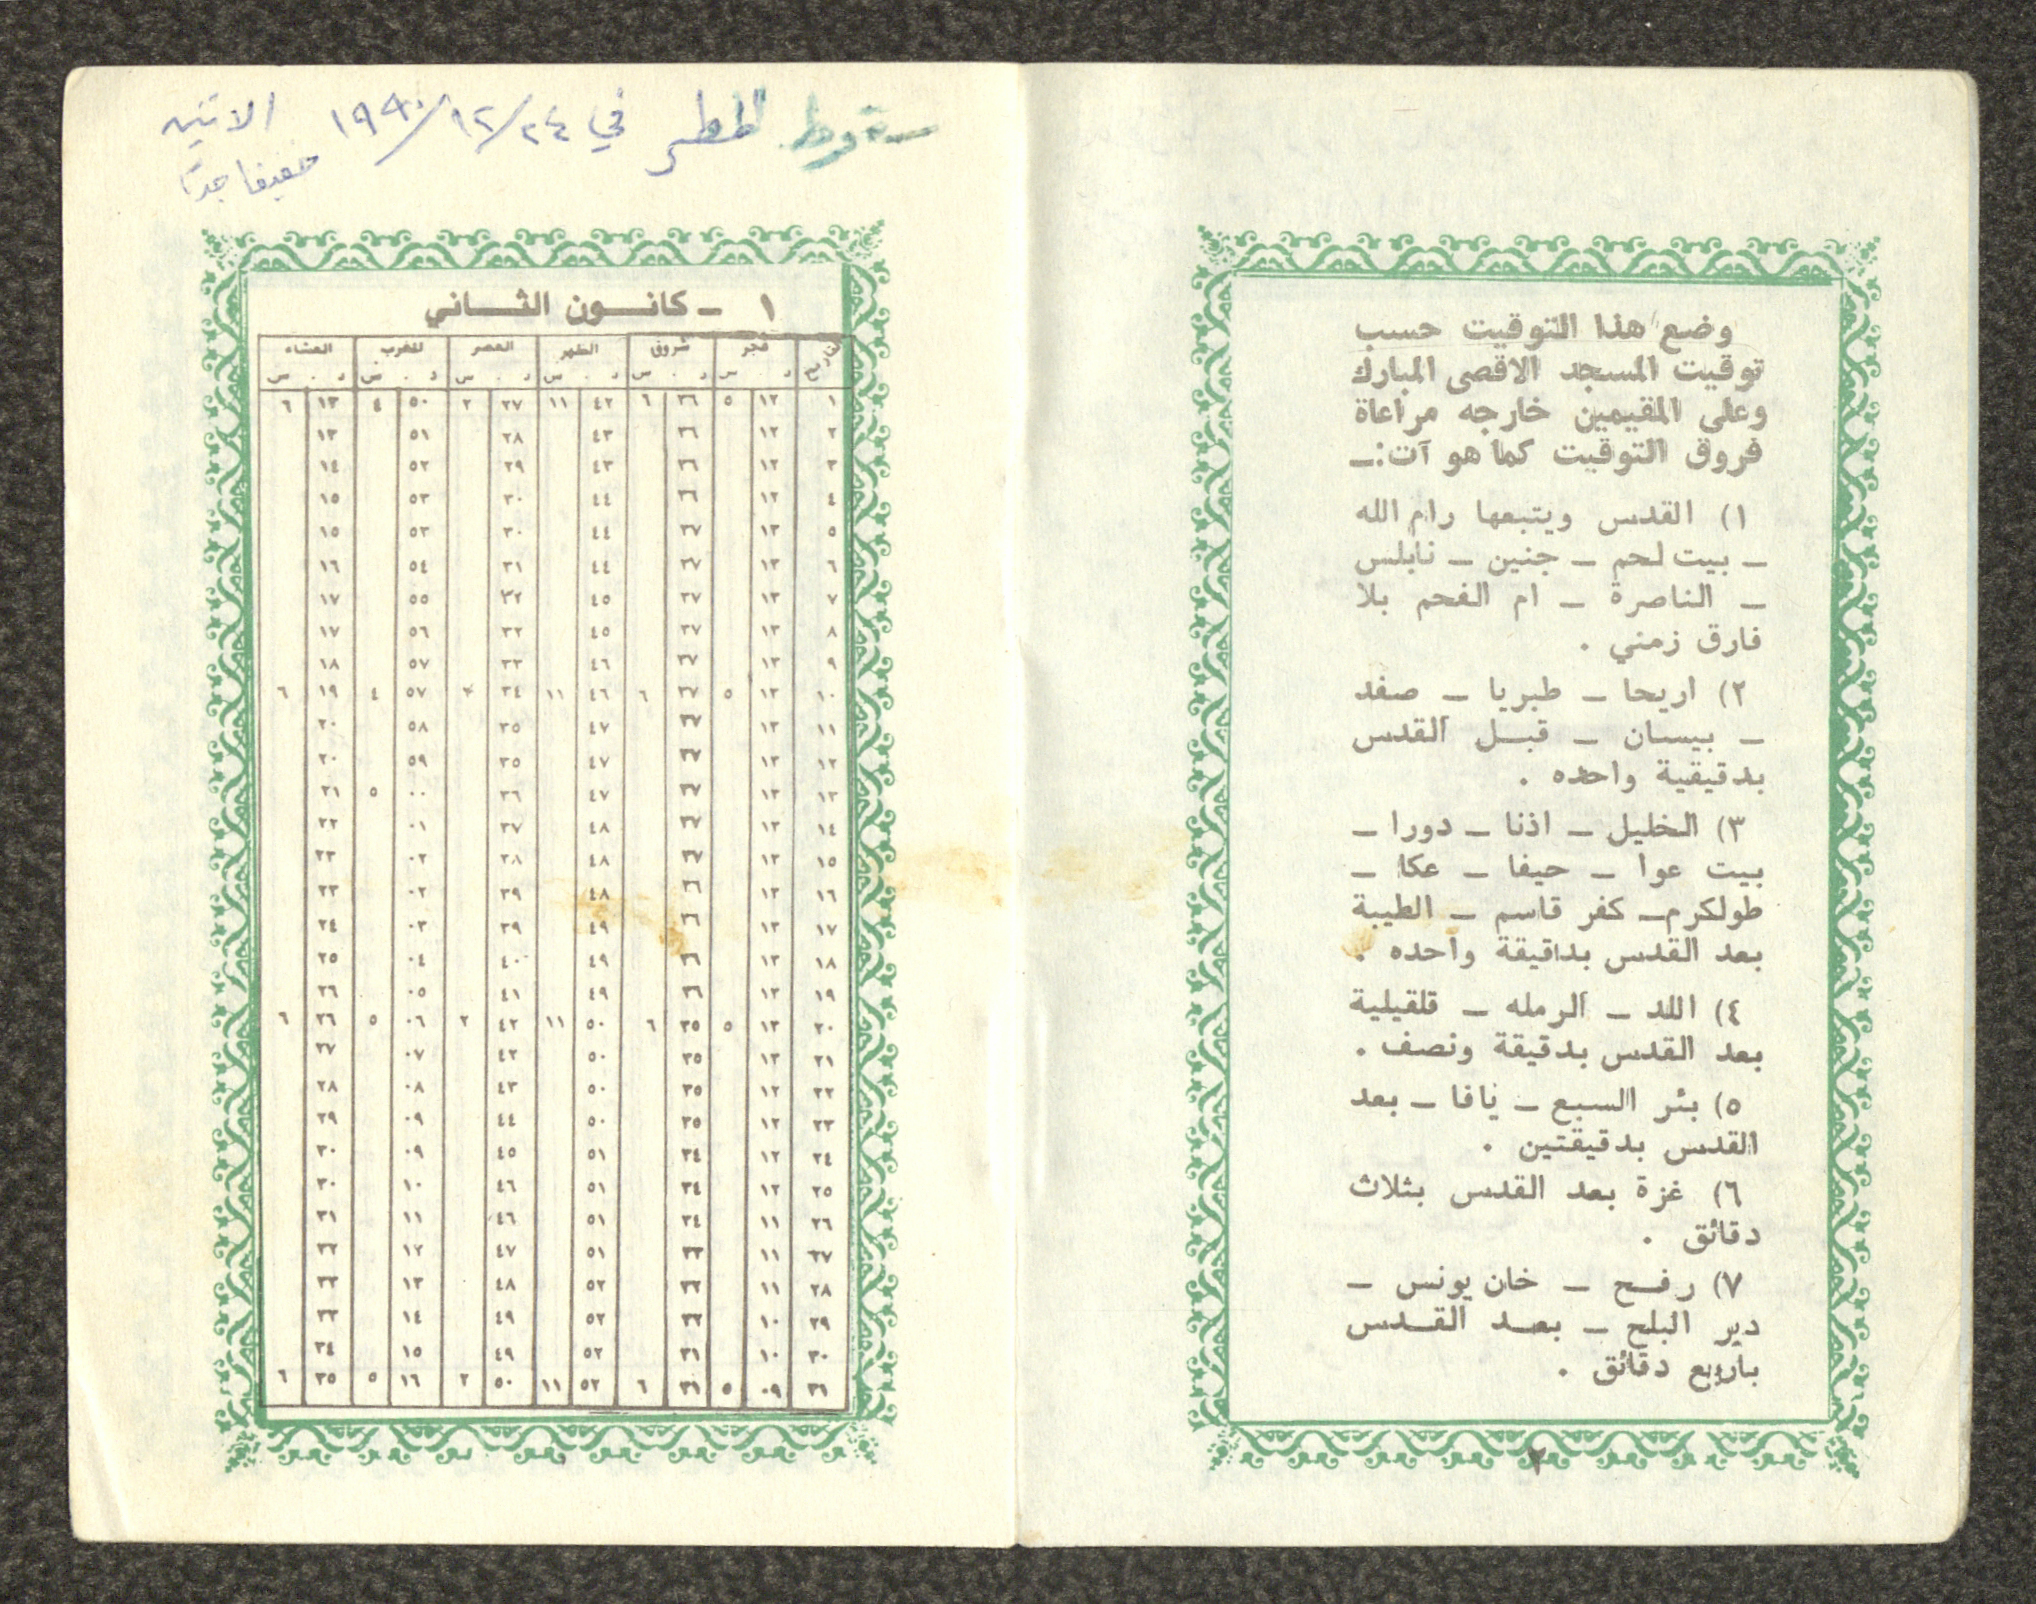 وضع هذا التوقيت حسب
توقيت المسجد الاقصى المبارك
وعلى المقيمين خارجه مراعاة
فروق التوقيت كما هو آت:ـ
١) القدس ويتبعها رام الله
ـ بيت لحم ـ جنين ـ نابلس
ـ الناصرة ـ ام الفحم بلا
فارق زمني .
٢) اريحا ـ طبريا ـ صفد
ـ بيسان ـ قبل القدس
بدقيقية واحده .
٣) الخليل ـ اذنا ـ دورا ـ
بيت عوا ـ حيفا ـ عكا ـ
طولكرم ـ كفر قاسم ـ الطيبة
بعد القدس بداقيقة واحده .
٤) اللد ـ الرمله ـ قلقيلية
بعد القدس بدقيقة ونصف .
٥) بئر السبع ـ يافا ـ بعد
القدس بدقيقتين .
٦) غزة بعد القدس بثلاث
دقائق .
٧) رفح ـ خان يونس ـ
دير البلح ـ بعد القدس
باربع دقائق .
٢
سقوط المطر في ٢٤/١٢/١٩٩٠ الاثنين
خفيفا جدًا
١ ـ كانون الثاني
تاريخ فجر شروق الظهر العصر المغرب العشاء
د . س د . س د . س د . س د . س د . س
١ ١٢ ٥ ٣٦ ٦ ٤٢ ١١ ٢٧ ٢ ٥٠ ٤ ١٣ ٦
٢ ١٢ ٣٦ ٤٣ ٢٨ ٥١ ١٣
٣ ١٢ ٣٦ ٤٣ ٢٩ ٥٢ ١٤
٤ ١٢ ٣٦ ٤٤ ٣٠ ٥٣ ١٥
٥ ١٣ ٣٧ ٤٤ ٣٠ ٥٣ ١٥
٦ ١٣ ٣٧ ٤٤ ٣١ ٥٤ ١٦
٧ ١٣ ٣٧ ٤٥ ٣٢ ٥٥ ١٧
٨ ١٣ ٣٧ ٤٥ ٣٢ ٥٦ ١٧
٩ ١٣ ٣٧ ٤٦ ٣٣ ٥٧ ١٨
١٠ ١٣ ٥ ٣٧ ٦ ٤٦ ١١ ٣٤ ٢ ٥٧ ٤ ١٩ ٦
١١ ١٣ ٣٧ ٤٧ ٣٥ ٥٨ ٢٠
١٢ ١٣ ٣٧ ٤٧ ٣٥ ٥٩ ٢٠
١٣ ١٣ ٣٧ ٤٧ ٣٦ ٠٠ ٥ ٢١
١٤ ١٣ ٣٧ ٤٨ ٣٧ ٠١ ٢٢
١٥ ١٣ ٣٧ ٤٨ ٣٨ ٠٢ ٢٣
١٦ ١٣ ٣٦ ٤٨ ٣٩ ٠٢ ٢٣
١٧ ١٣ ٣٦ ٤٩ ٣٩ ٠٣ ٢٤
١٨ ١٣ ٣٦ ٤٩ ٤٠ ٠٤ ٢٥
١٩ ١٣ ٣٦ ٤٩ ٤١ ٠٥ ٢٦
٢٠ ١٣ ٥ ٣٥ ٦ ٥٠ ١١ ٤٢ ٢ ٠٦ ٥ ٢٦ ٦
٢١ ١٣ ٣٥ ٥٠ ٤٢ ٠٧ ٢٧
٢٢ ١٢ ٣٥ ٥٠ ٤٣ ٠٨ ٢٨
٢٣ ١٢ ٣٥ ٥٠ ٤٤ ٠٩ ٢٩
٢٤ ١٢ ٣٤ ٥١ ٤٥ ٠٩ ٣٠
٢٥ ١٢ ٣٤ ٥١ ٤٦ ١٠ ٣٠
٢٦ ١١ ٣٤ ٥١ ٤٦ ١١ ٣١
٢٧ ١١ ٣٣ ٥١ ٤٧ ١٢ ٣٢
٢٨ ١١ ٣٢ ٥٢ ٤٨ ١٣ ٣٣
٢٩ ١٠ ٣٢ ٥٢ ٤٩ ١٤ ٣٣
٣٠ ١٠ ٣١ ٥٢ ٤٩ ١٥ ٣٤
٣١ ٠٩ ٥ ٣١ ٦ ٥٢ ١١ ٥٠ ٢ ١٦ ٥ ٣٥ ٦